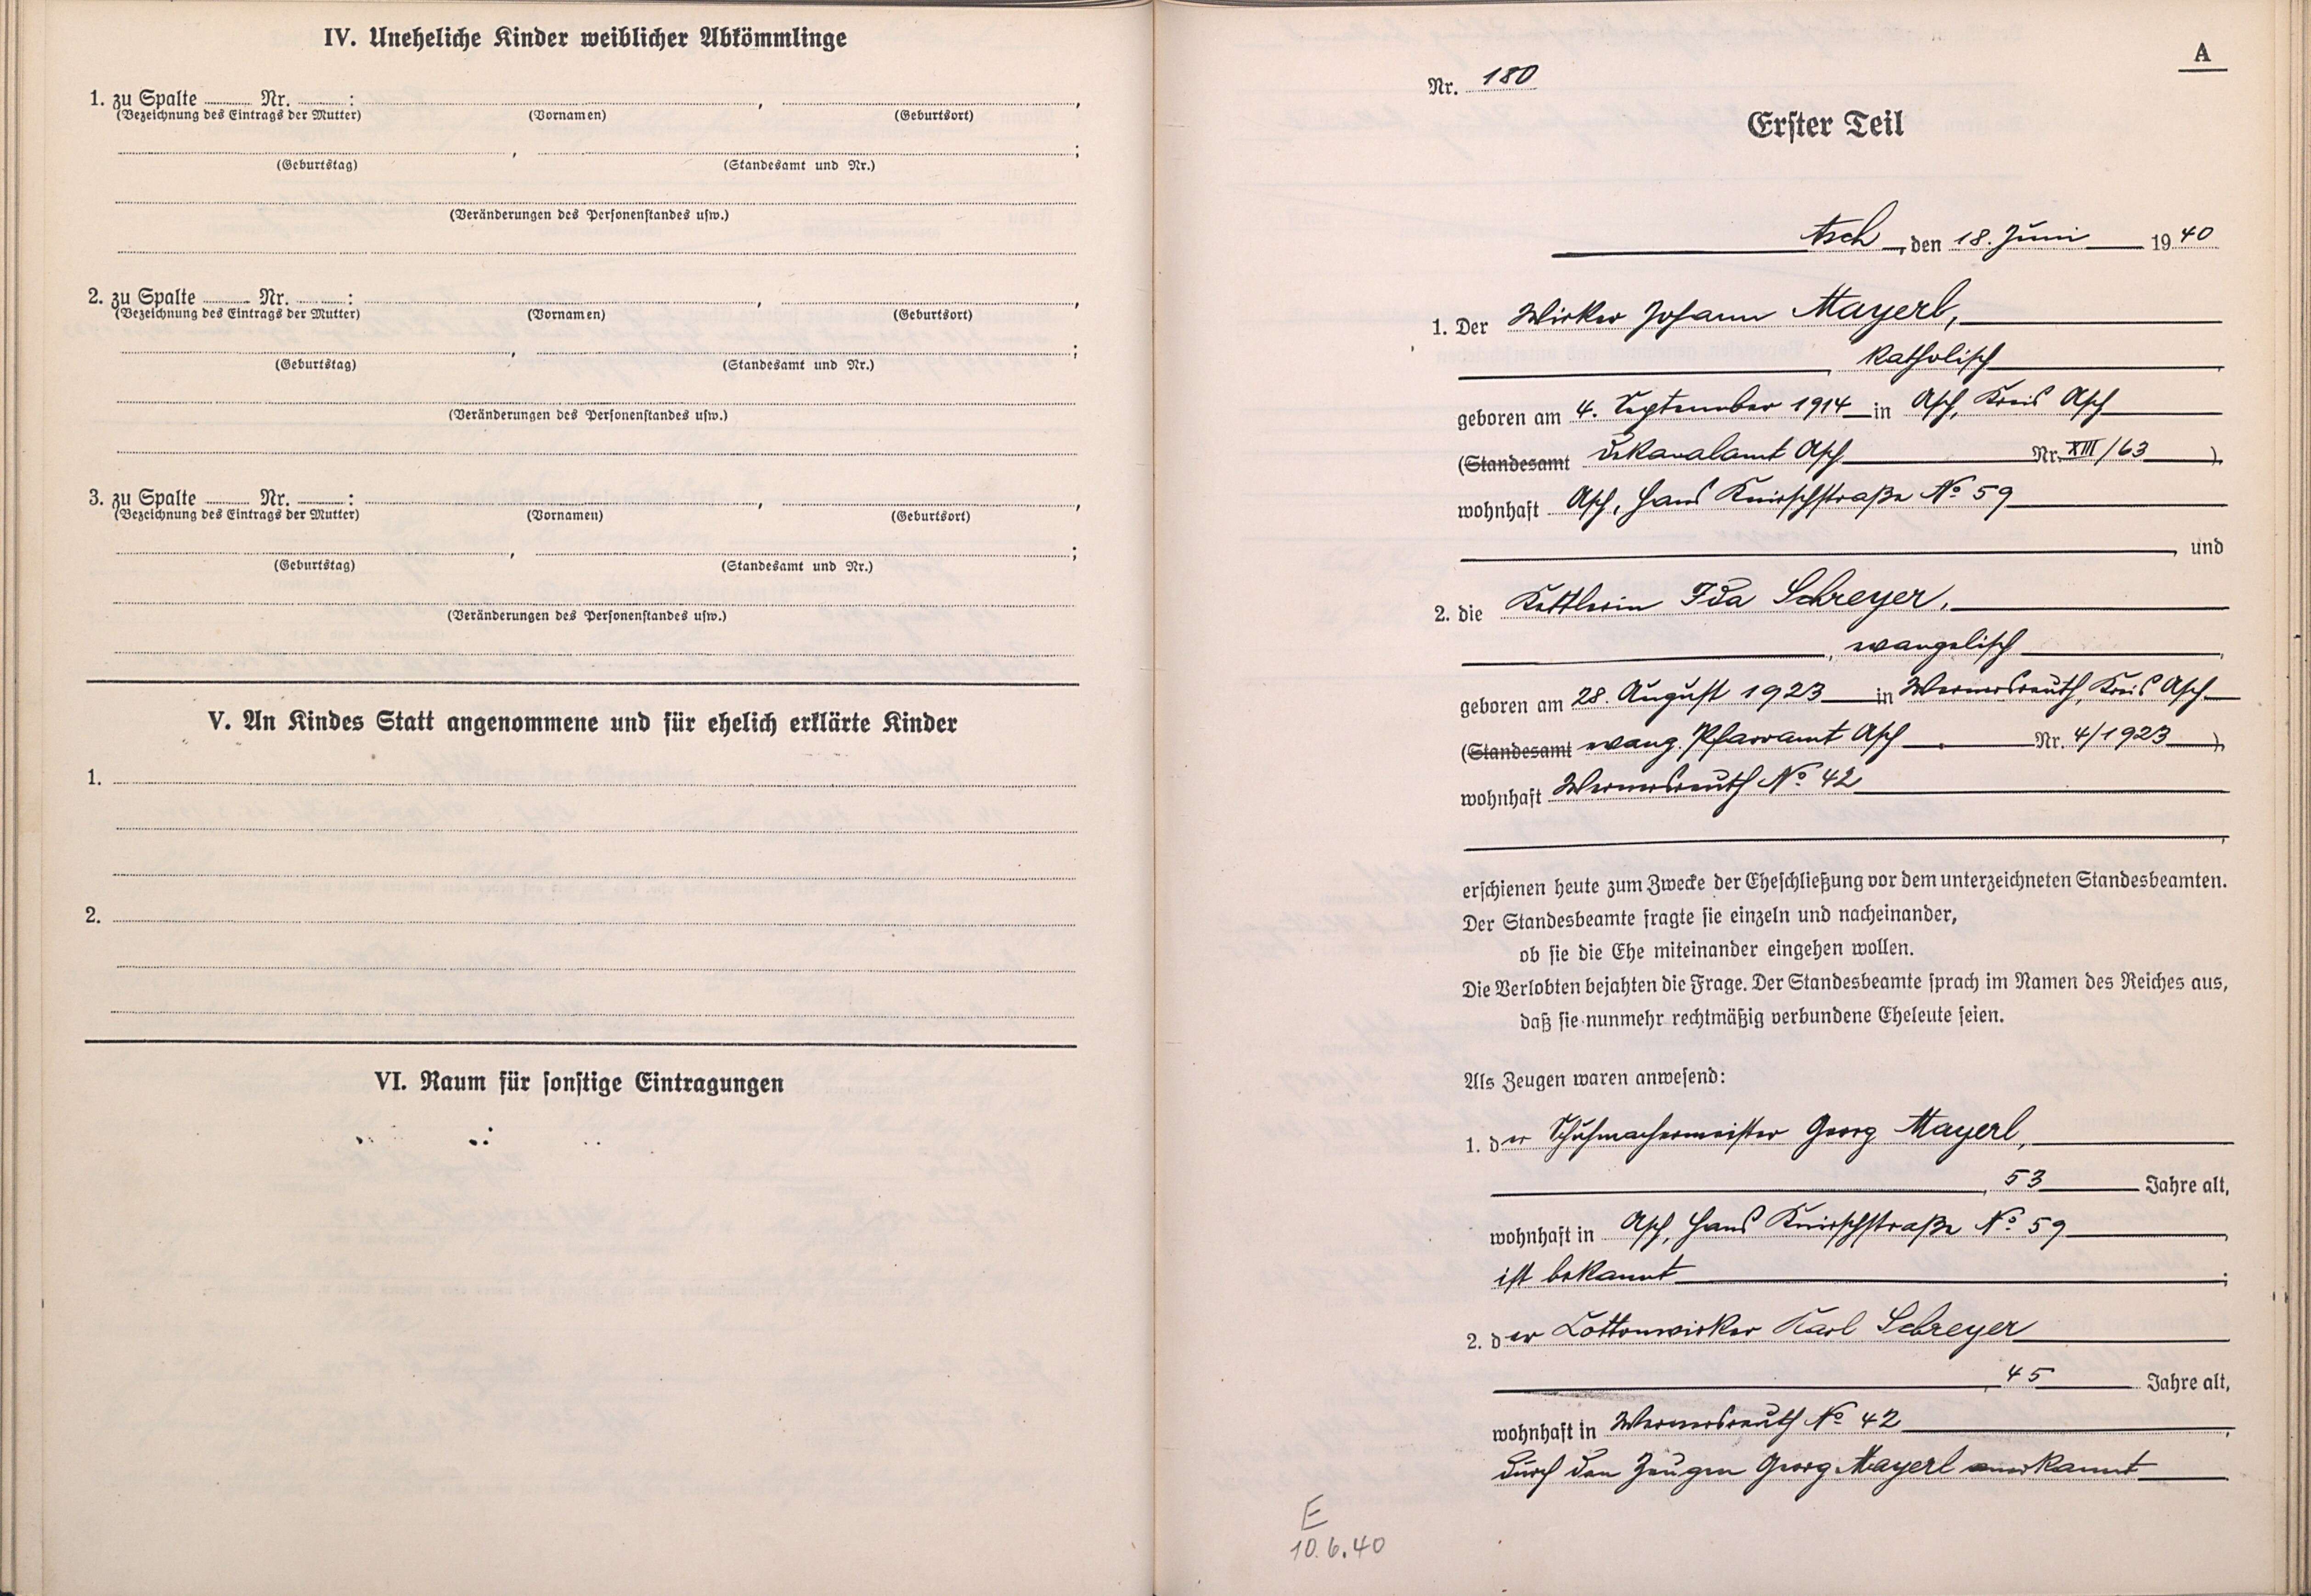 IV. Uneheliche Kinder weiblicher Abkömmlinge
1. zu Spalte Nr. : , ,
(Bezeichnung des Eintrags der Mutter) (Vornamen) (Geburtsort)
, ;
(Geburtstag) (Standesamt und Nr.)
(Veränderungen des Personenstandes usw.)
2. zu Spalte Nr. : , ,
(Bezeichnung des Eintrags der Mutter) (Vornamen) (Geburtsort)
, ;
(Geburtstag) (Standesamt und Nr.)
(Veränderungen des Personenstandes usw.)
3. zu Spalte Nr. : , ,
(Bezeichnung des Eintrags der Mutter) (Vornamen) (Geburtsort)
, ;
(Geburtstag) (Standesamt und Nr.)
(Veränderungen des Personenstandes usw.)
V. An Kindes Statt angenommene und für ehelich erklärte Kinder
1.
2.
VI. Raum für sonstige Eintragungen
A
Nr. 180
Erster Teil
Asch, den 18. Juni 1940
1. Der Wirker Johann Mayerl,
, katholisch,
geboren am 4. September 1914 in Asch, Kreis Asch
(Standesamt Dekanalamt Asch Nr. XIII/63)
wohnhaft Asch, Hans Knirschstraße No 59
, und
2. die Kettlerin Ida Schreyer,
, evangelisch,
geboren am 28. August 1923 in Wernersreuth, Kreis Asch
(Standesamt evang. Pfarramt Asch Nr. 4/1923)
wohnhaft Wernersreuth No 42
,
erschienen heute zum Zwecke der Eheschließung vor dem unterzeichneten Standesbeamten.
Der Standesbeamte fragte sie einzeln und nacheinander,
ob sie die Ehe miteinander eingehen wollen.
Die Verlobten bejahten die Frage. Der Standesbeamte sprach im Namen des Reiches aus,
daß sie nunmehr rechtmäßig verbundene Eheleute seien.
Als Zeugen waren anwesend:
1. der Schuhmachermeister Georg Mayerl,
, 53 Jahre alt,
wohnhaft in Asch, Hans Knirschstraße No 59,
ist bekannt;
2. der Cottonwirker Karl Schreyer
, 45 Jahre alt,
wohnhaft in Wernersreuth No 42,
durch den Zeugen Georg Mayerl anerkannt
E
10.6.40